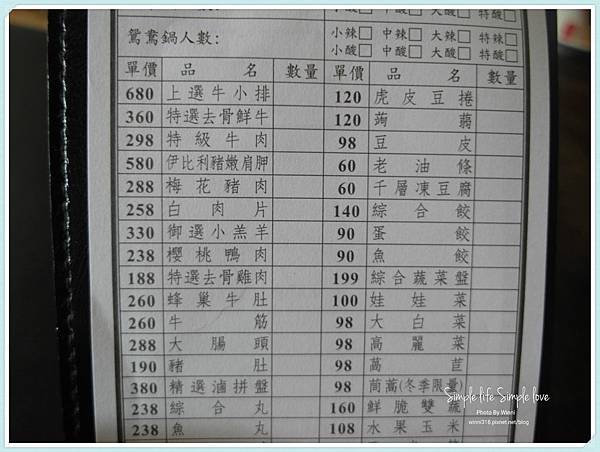 小酸□ 中酸□ 大酸□ 特酸□
鴛鴦鍋人數:
小辣□ 中辣□ 大辣□ 特辣□
小酸□ 中酸□ 大酸□ 特酸□
單價 品名 數量 單價 品名 數量
680 上選牛小排 120 虎皮豆捲
360 特選去骨鮮牛 120 蒟蒻
298 特級牛肉 98 豆皮
580 伊比利豬嫩肩胛 60 老油條
288 梅花豬肉 60 千層凍豆腐
258 白肉片 140 綜合餃
330 御選小羔羊 90 蛋餃
238 櫻桃鴨肉 90 魚餃
188 特選去骨雞肉 199 綜合蔬菜盤
260 蜂巢牛肚 100 娃娃菜
260 牛筋 98 大白菜
288 大腸頭 98 高麗菜
190 豬肚 98 萵苣
380 精選滷拼盤 98 茼蒿(冬季限量)
238 綜合丸 160 鮮脆雙蔬
238 魚丸 108 水果玉米
Simple life Simple love
Photo By Winni
winni318.pixnet.net/blog